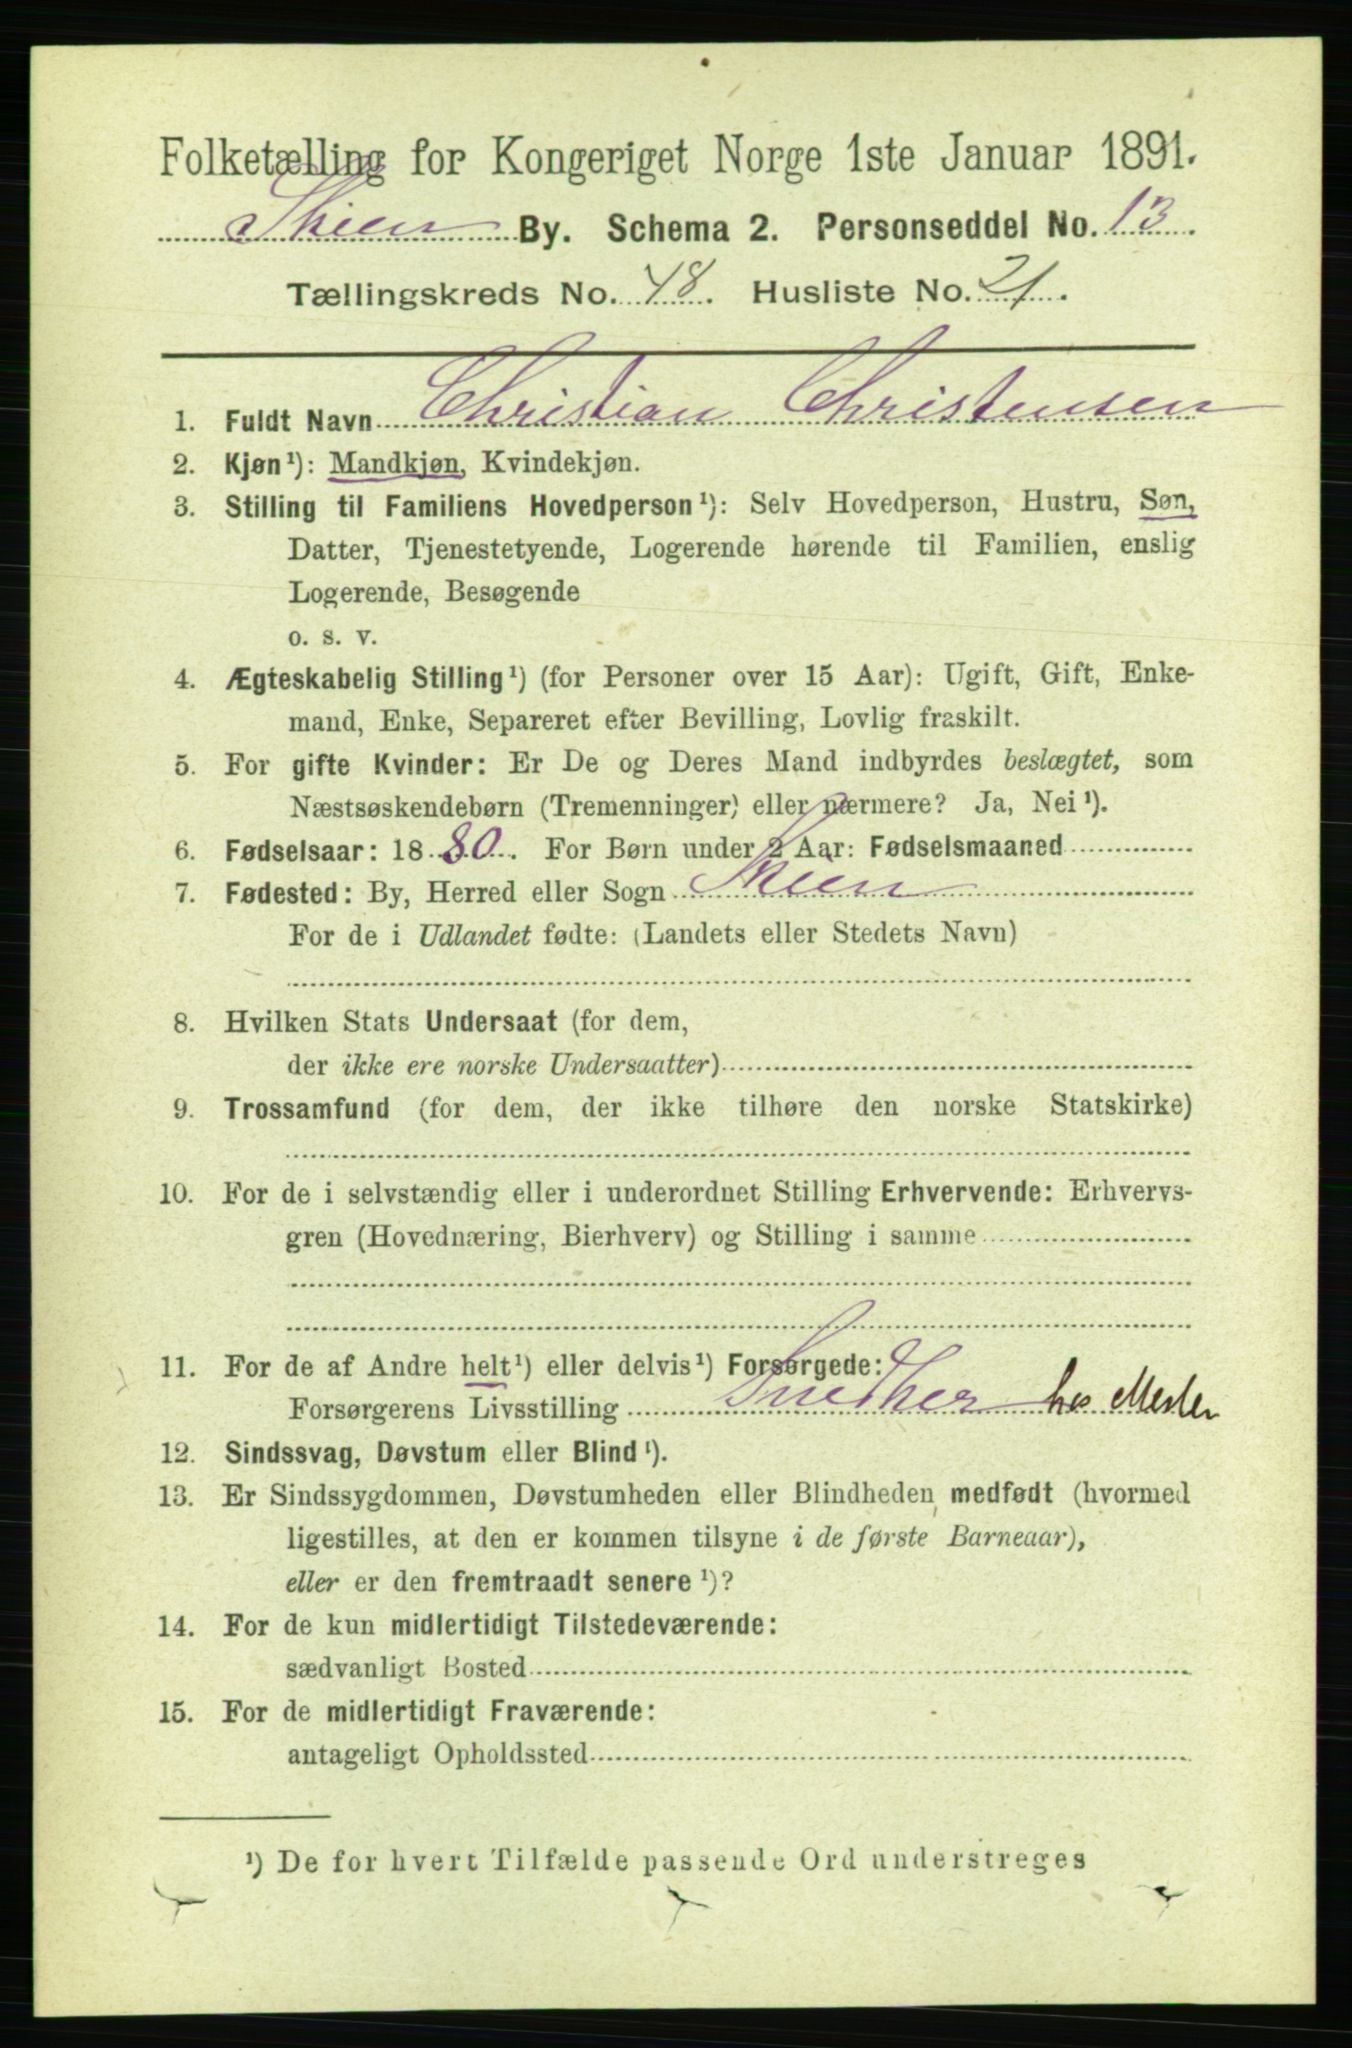 Folketælling for Kongeriget Norge 1ste Januar 1891.
Skien By. Schema 2. Personseddel No. 13.
Tællingskreds No. 48. Husliste No. 21.
1. Fuldt Navn Christian Christensen
2. Kjøn¹): Mandkjøn, Kvindekjøn.
3. Stilling til Familiens Hovedperson¹): Selv Hovedperson, Hustru, Søn,
Datter, Tjenestetyende, Logerende hørende til Familien, enslig
Logerende, Besøgende
o. s. v.
4. Ægteskabelig Stilling¹) (for Personer over 15 Aar): Ugift, Gift, Enke-
mand, Enke, Separeret efter Bevilling, Lovlig fraskilt.
5. For gifte Kvinder: Er De og Deres Mand indbyrdes beslægtet, som
Næstsøskendebørn (Tremenninger) eller nærmere? Ja, Nei¹).
6. Fødselsaar: 1880. For Børn under 2 Aar: Fødselsmaaned
7. Fødested: By, Herred eller Sogn Skien
For de i Udlandet fødte: (Landets eller Stedets Navn)
8. Hvilken Stats Undersaat (for dem,
der ikke ere norske Undersaatter)
9. Trossamfund (for dem, der ikke tilhøre den norske Statskirke)
10. For de i selvstændig eller i underordnet Stilling Erhvervende: Erhvervs-
gren (Hovednæring, Bierhverv) og Stilling i samme
11. For de af Andre helt¹) eller delvis¹) Forsørgede:
Forsørgerens Livsstilling hos Mester
12. Sindssvag, Døvstum eller Blind¹).
13. Er Sindssygdommen, Døvstumheden eller Blindheden medfødt (hvormed
ligestilles, at den er kommen tilsyne i de første Barneaar),
eller er den fremtraadt senere¹)?
14. For de kun midlertidigt Tilstedeværende:
sædvanligt Bosted
15. For de midlertidigt Fraværende:
antageligt Opholdssted
¹) De for hvert Tilfælde passende Ord understreges